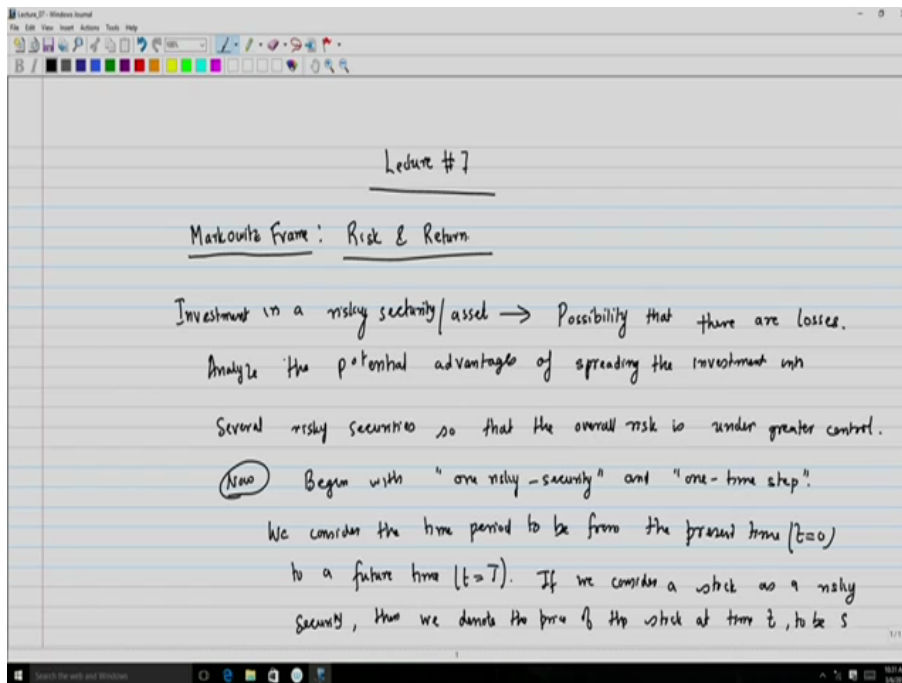 Lecture_07 - Windows Journal
File Edit View Insert Actions Tools Help
B I
Lecture #7
Markowitz Frame: Risk & Return
Investment in a risky security/asset → Possibility that there are losses.
Analyze the potential advantages of spreading the investment into
Several risky securities so that the overall risk is under greater control.
Now Begin with "one risky-security" and "one-time step".
We consider the time period to be from the present time (t=0)
to a future time (t=T). If we consider a stock as a risky
security, then we denote the price of the stock at time t, to be S
1/1
1
Search the web and Windows